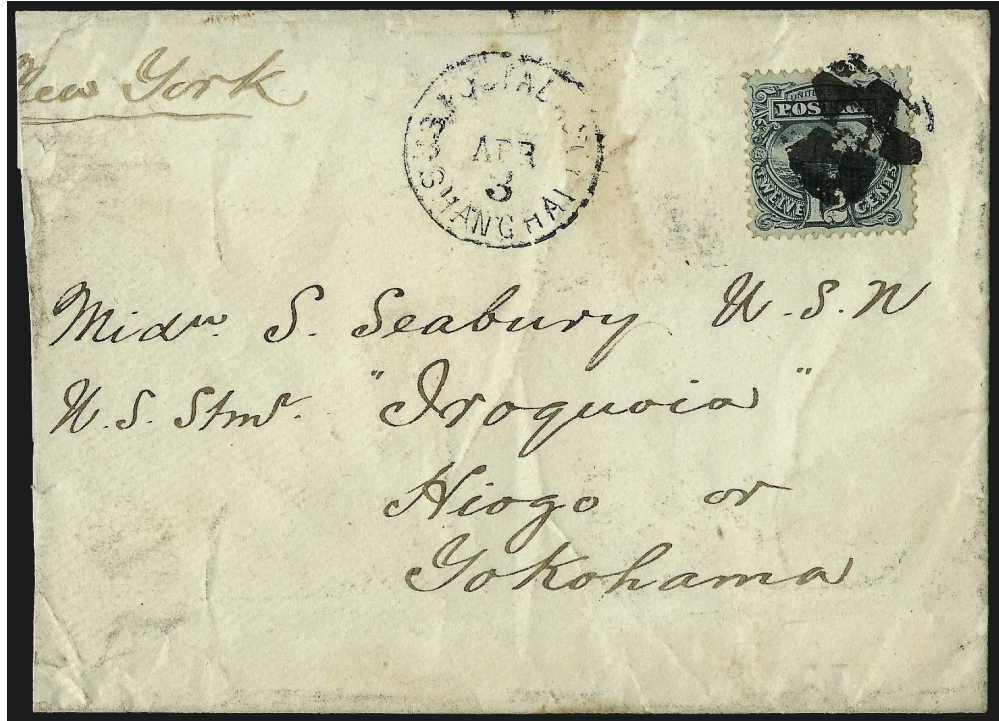 New York
U.S. POSTAL AGCY
APR
3
SHANGHAI
UNITED
POSTAGE
TWELVE 12 CENTS
Midn. S. Seabury U.S.N
U.S. Stmr. "Iroquois"
Hiogo or
Yokohama